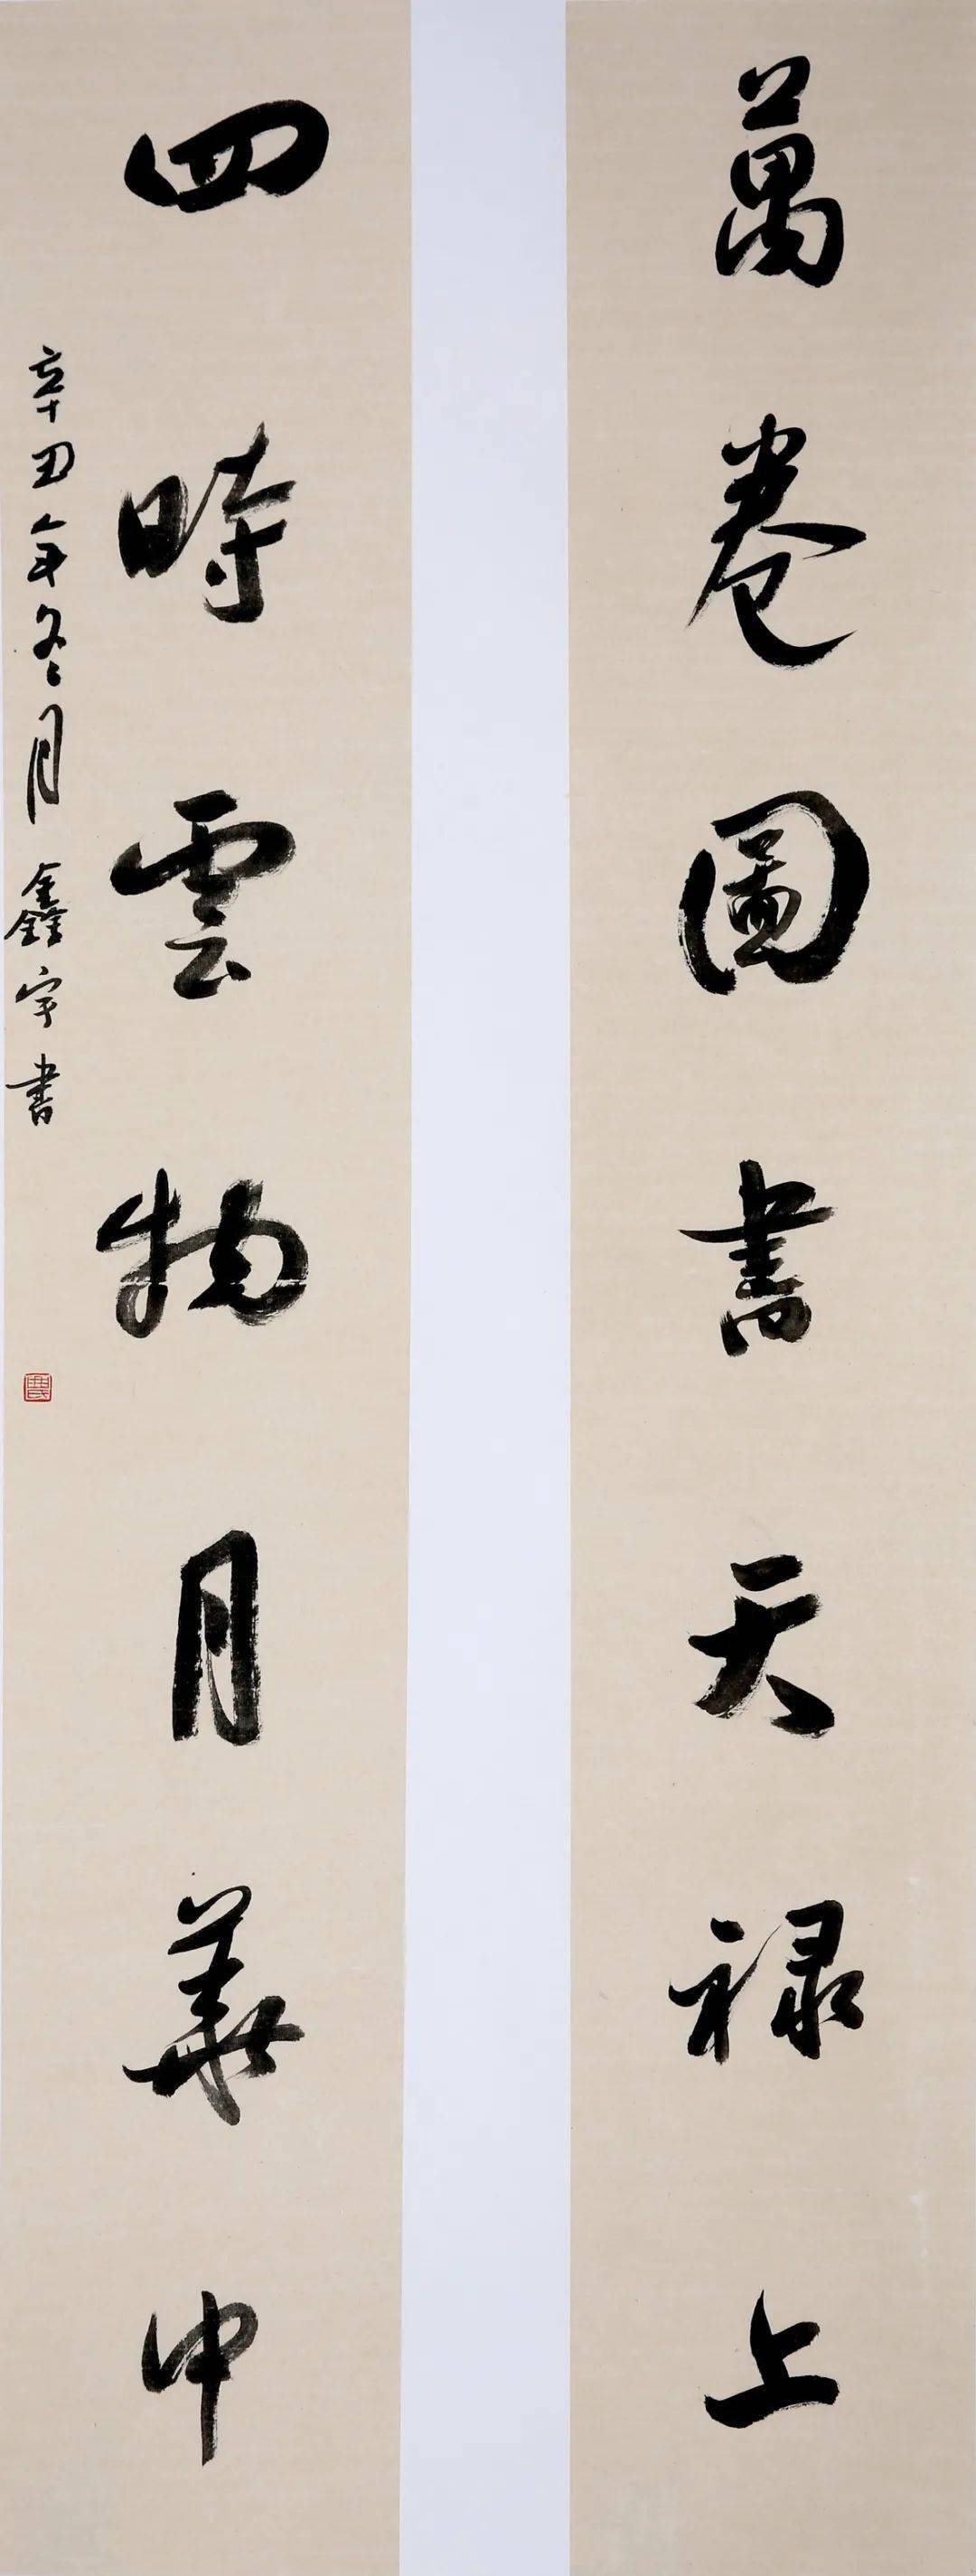 萬卷圖書天禄上
四時雲物月華中
辛丑年冬月鑫宇書